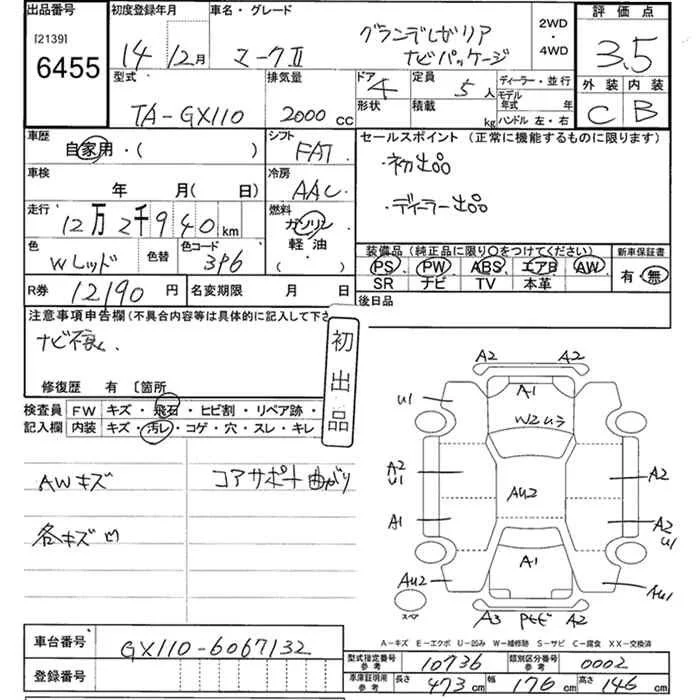 出品番号 初度登録年月 車名・グレード 2WD・4WD 評価点
[2139] 6455 14年12月 マークⅡ グランデレガリア ナビパッケージ 3.5
型式 排気量 ドア 4 定員 5人 ディーラー・並行 外装 内装
TA-GX110 2000cc 形状 積載 kg モデル年式 年 ハンドル 左・右 C B
車歴 自家用・( ) シフト FAT セールスポイント (正常に機能するものに限ります)
車検 年 月(日) 冷房 AAC ・初出品
走行 12万2千940km 燃料 ガソリン ・ディーラー出品
色 Wレッド 色替 色コード 3P6 軽油・( ) 装備品(純正品に限り○をつけてください) 新車保証書
PS PW ABS エアB AW 有・無
SR ナビ TV 本革
R券 12190円 名変期限 月 日 後日品
注意事項申告欄(不具合内容等は具体的に記入して下さ
ナビ不良、
初出品
修復歴 有 〔箇所
検査員 FW キズ・飛石・ヒビ割・リペア跡・
記入欄 内装 キズ・汚レ・コゲ・穴・スレ・キレ
AWキズ コアサポート曲がり
各キズ凹
A2 A2
A1
U1
W2ムラ
A2 U1
A2
AU2
A1
A2 U1
A1
AU2
AU1
スペア
A3 A2
A-キズ E-エクボ U-凹み W-補修跡 S-サビ C-腐食 XX-交換済
車台番号 GX110-6067132
型式指定番号 参考 10736 類別区分番号 参考 0002
登録番号
車庫証明用 参考 長さ 473cm 幅 176cm 高さ 146cm